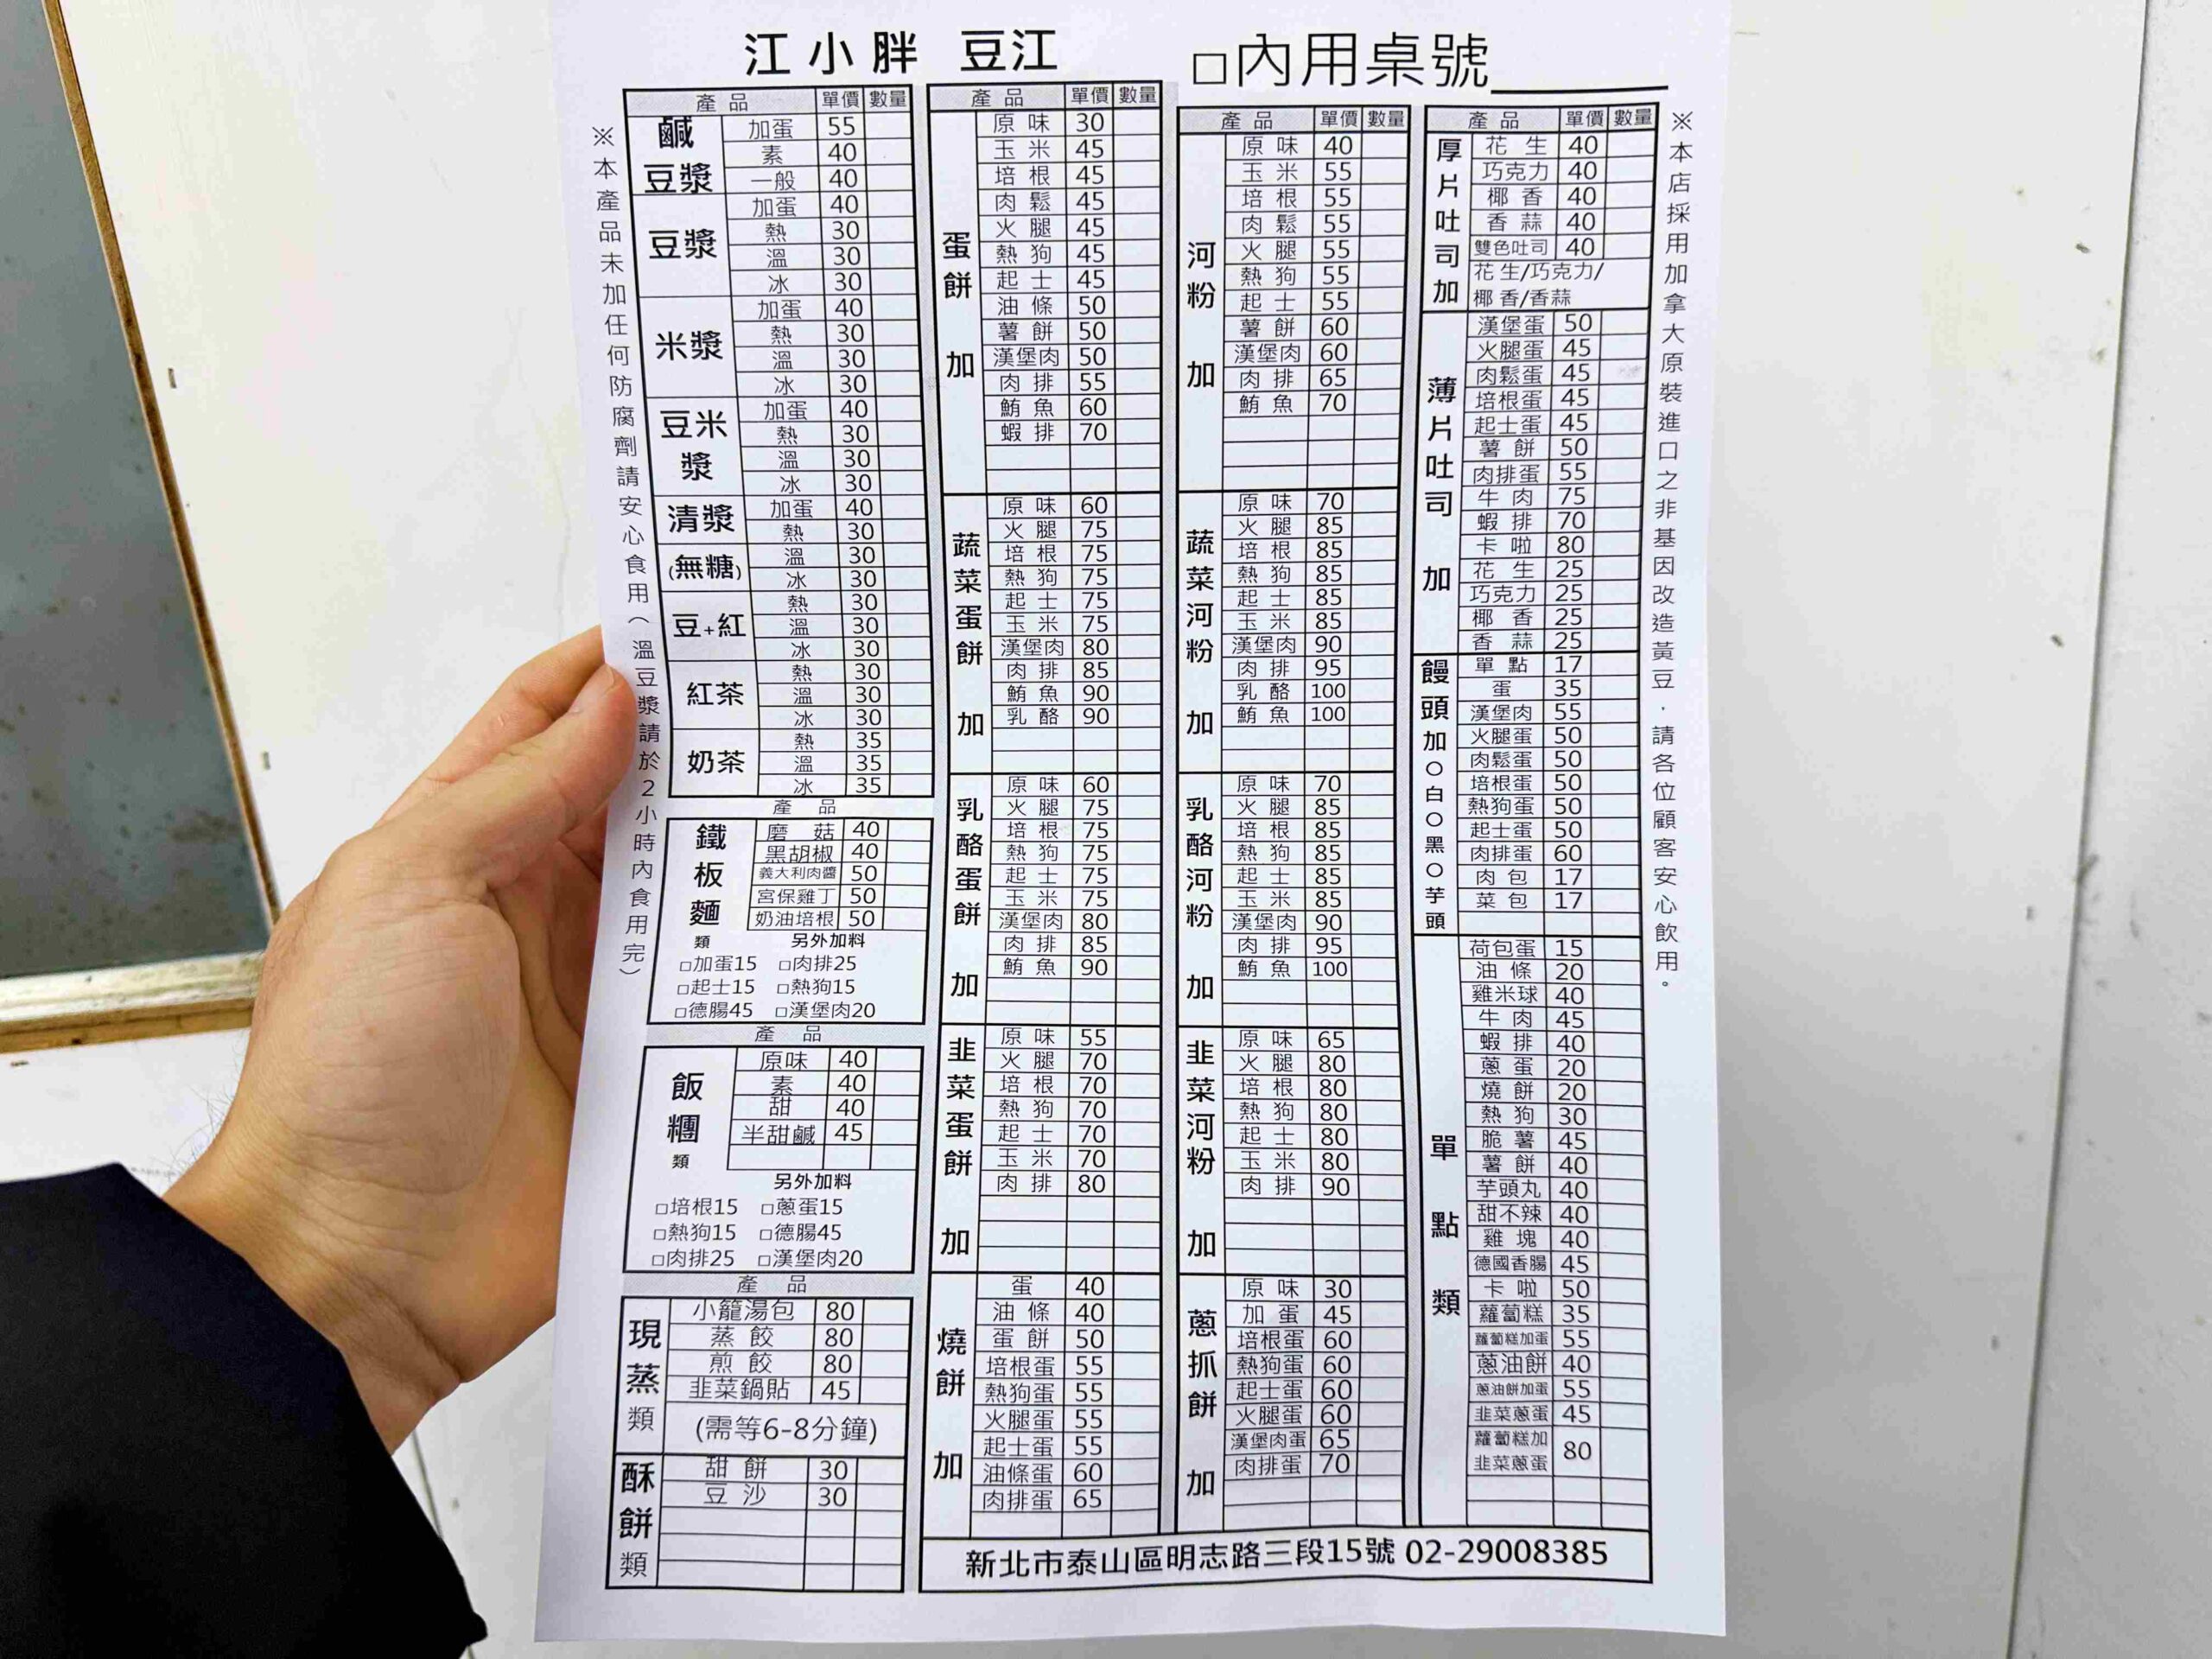 江小胖 豆江
□內用桌號
※本產品未加任何防腐劑請安心食用(溫豆漿請於2小時內食用完)
產品 單價 數量
鹹豆漿
加蛋 55
素 40
一般 40
豆漿
加蛋 40
熱 30
溫 30
冰 30
米漿
加蛋 40
熱 30
溫 30
冰 30
豆米漿
加蛋 40
熱 30
溫 30
冰 30
清漿(無糖)
加蛋 40
熱 30
溫 30
冰 30
豆+紅
熱 30
溫 30
冰 30
紅茶
熱 30
溫 30
冰 30
奶茶
熱 35
溫 35
冰 35
產品
鐵板麵類
磨菇 40
黑胡椒 40
義大利肉醬 50
宮保雞丁 50
奶油培根 50
另外加料
□加蛋15 □肉排25
□起士15 □熱狗15
□德腸45 □漢堡肉20
產品
飯糰類
原味 40
素 40
甜 40
半甜鹹 45
另外加料
□培根15 □蔥蛋15
□熱狗15 □德腸45
□肉排25 □漢堡肉20
產品
現蒸類
小籠湯包 80
蒸餃 80
煎餃 80
韭菜鍋貼 45
(需等6-8分鐘)
酥餅類
甜餅 30
豆沙 30
產品 單價 數量
蛋餅加
原味 30
玉米 45
培根 45
肉鬆 45
火腿 45
熱狗 45
起士 45
油條 50
薯餅 50
漢堡肉 50
肉排 55
鮪魚 60
蝦排 70
蔬菜蛋餅加
原味 60
火腿 75
培根 75
熱狗 75
起士 75
玉米 75
漢堡肉 80
肉排 85
鮪魚 90
乳酪 90
乳酪蛋餅加
原味 60
火腿 75
培根 75
熱狗 75
起士 75
玉米 75
漢堡肉 80
肉排 85
鮪魚 90
韭菜蛋餅加
原味 55
火腿 70
培根 70
熱狗 70
起士 70
玉米 70
肉排 80
燒餅加
蛋 40
油條 40
蛋餅 50
培根蛋 55
熱狗蛋 55
火腿蛋 55
起士蛋 55
油條蛋 60
肉排蛋 65
產品 單價 數量
河粉加
原味 40
玉米 55
培根 55
肉鬆 55
火腿 55
熱狗 55
起士 55
薯餅 60
漢堡肉 60
肉排 65
鮪魚 70
蔬菜河粉加
原味 70
火腿 85
培根 85
熱狗 85
起士 85
玉米 85
漢堡肉 90
肉排 95
乳酪 100
鮪魚 100
乳酪河粉加
原味 70
火腿 85
培根 85
熱狗 85
起士 85
玉米 85
漢堡肉 90
肉排 95
鮪魚 100
韭菜河粉加
原味 65
火腿 80
培根 80
熱狗 80
起士 80
玉米 80
肉排 90
蔥抓餅加
原味 30
加蛋 45
培根蛋 60
熱狗蛋 60
起士蛋 60
火腿蛋 60
漢堡肉蛋 65
肉排蛋 70
產品 單價 數量
厚片吐司加
花生 40
巧克力 40
椰香 40
香蒜 40
雙色吐司 40
花生/巧克力/
椰香/香蒜
薄片吐司加
漢堡蛋 50
火腿蛋 45
肉鬆蛋 45
培根蛋 45
起士蛋 45
薯餅 50
肉排蛋 55
牛肉 75
蝦排 70
卡啦 80
花生 25
巧克力 25
椰香 25
香蒜 25
饅頭加○白○黑○芋頭
單點 17
蛋 35
漢堡肉 55
火腿蛋 50
肉鬆蛋 50
培根蛋 50
熱狗蛋 50
起士蛋 50
肉排蛋 60
肉包 17
菜包 17
單點類
荷包蛋 15
油條 20
雞米球 40
牛肉 45
蝦排 40
蔥蛋 20
燒餅 20
熱狗 30
脆薯 45
薯餅 40
芋頭丸 40
甜不辣 40
雞塊 40
德國香腸 45
卡啦 50
蘿蔔糕 35
蘿蔔糕加蛋 55
蔥油餅 40
蔥油餅加蛋 55
韭菜蔥蛋 45
蘿蔔糕加
韭菜蔥蛋 80
※本店採用加拿大原裝進口之非基因改造黃豆.請各位顧客安心飲用。
新北市泰山區明志路三段15號 02-29008385